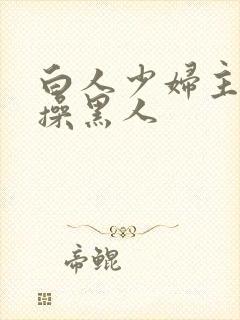 白人少婦主
操黑人
帝鲲